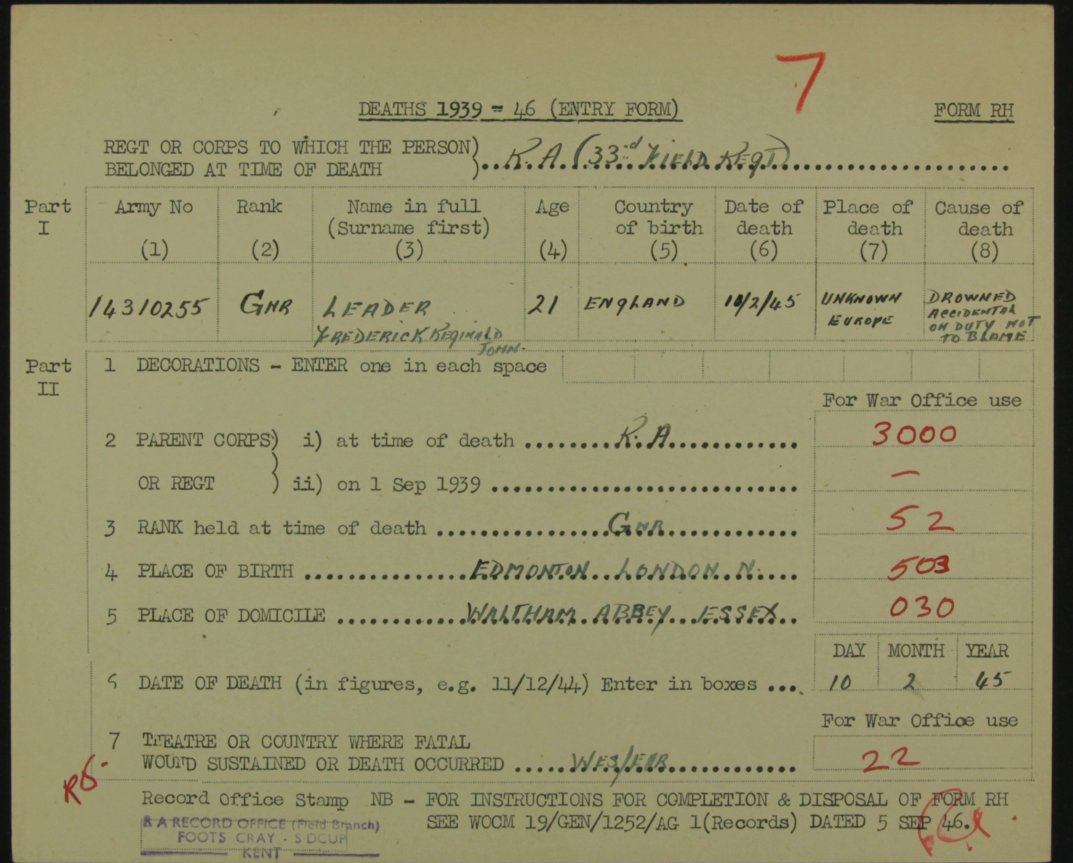 7
DEATHS 1939 - 46 (ENTRY FORM) FORM RH
REGT OR CORPS TO WHICH THE PERSON)
BELONGED AT TIME OF DEATH ) R.A. (33rd FIELD REGT)
Part I
Army No (1) Rank (2) Name in full (Surname first) (3) Age (4) Country of birth (5) Date of death (6) Place of death (7) Cause of death (8)
14310255 GNR LEADER FREDERICK REGINALD JOHN. 21 ENGLAND 10/2/45 UNKNOWN EUROPE DROWNED ACCIDENTAL ON DUTY NOT TO BLAME
Part II
1 DECORATIONS - ENTER one in each space
For War Office use
2 PARENT CORPS) i) at time of death ........R.A............ 3000
OR REGT ) ii) on 1 Sep 1939 ............................ —
3 RANK held at time of death ...............GNR............ 52
4 PLACE OF BIRTH ...............EDMONTON..LONDON.N..... 503
5 PLACE OF DOMICILE ............WALTHAM.ABBEY..ESSEX.. 030
DAY MONTH YEAR
6 DATE OF DEATH (in figures, e.g. 11/12/44) Enter in boxes .... 10 2 45
For War Office use
7 THEATRE OR COUNTRY WHERE FATAL
WOUND SUSTAINED OR DEATH OCCURRED .....WES/EUR............ 22
Record Office Stamp NB - FOR INSTRUCTIONS FOR COMPLETION & DISPOSAL OF FORM RH
SEE WOCM 19/GEN/1252/AG 1(Records) DATED 5 SEP 46.
R A RECORD OFFICE (Field Branch)
FOOTS CRAY - SIDCUP
KENT